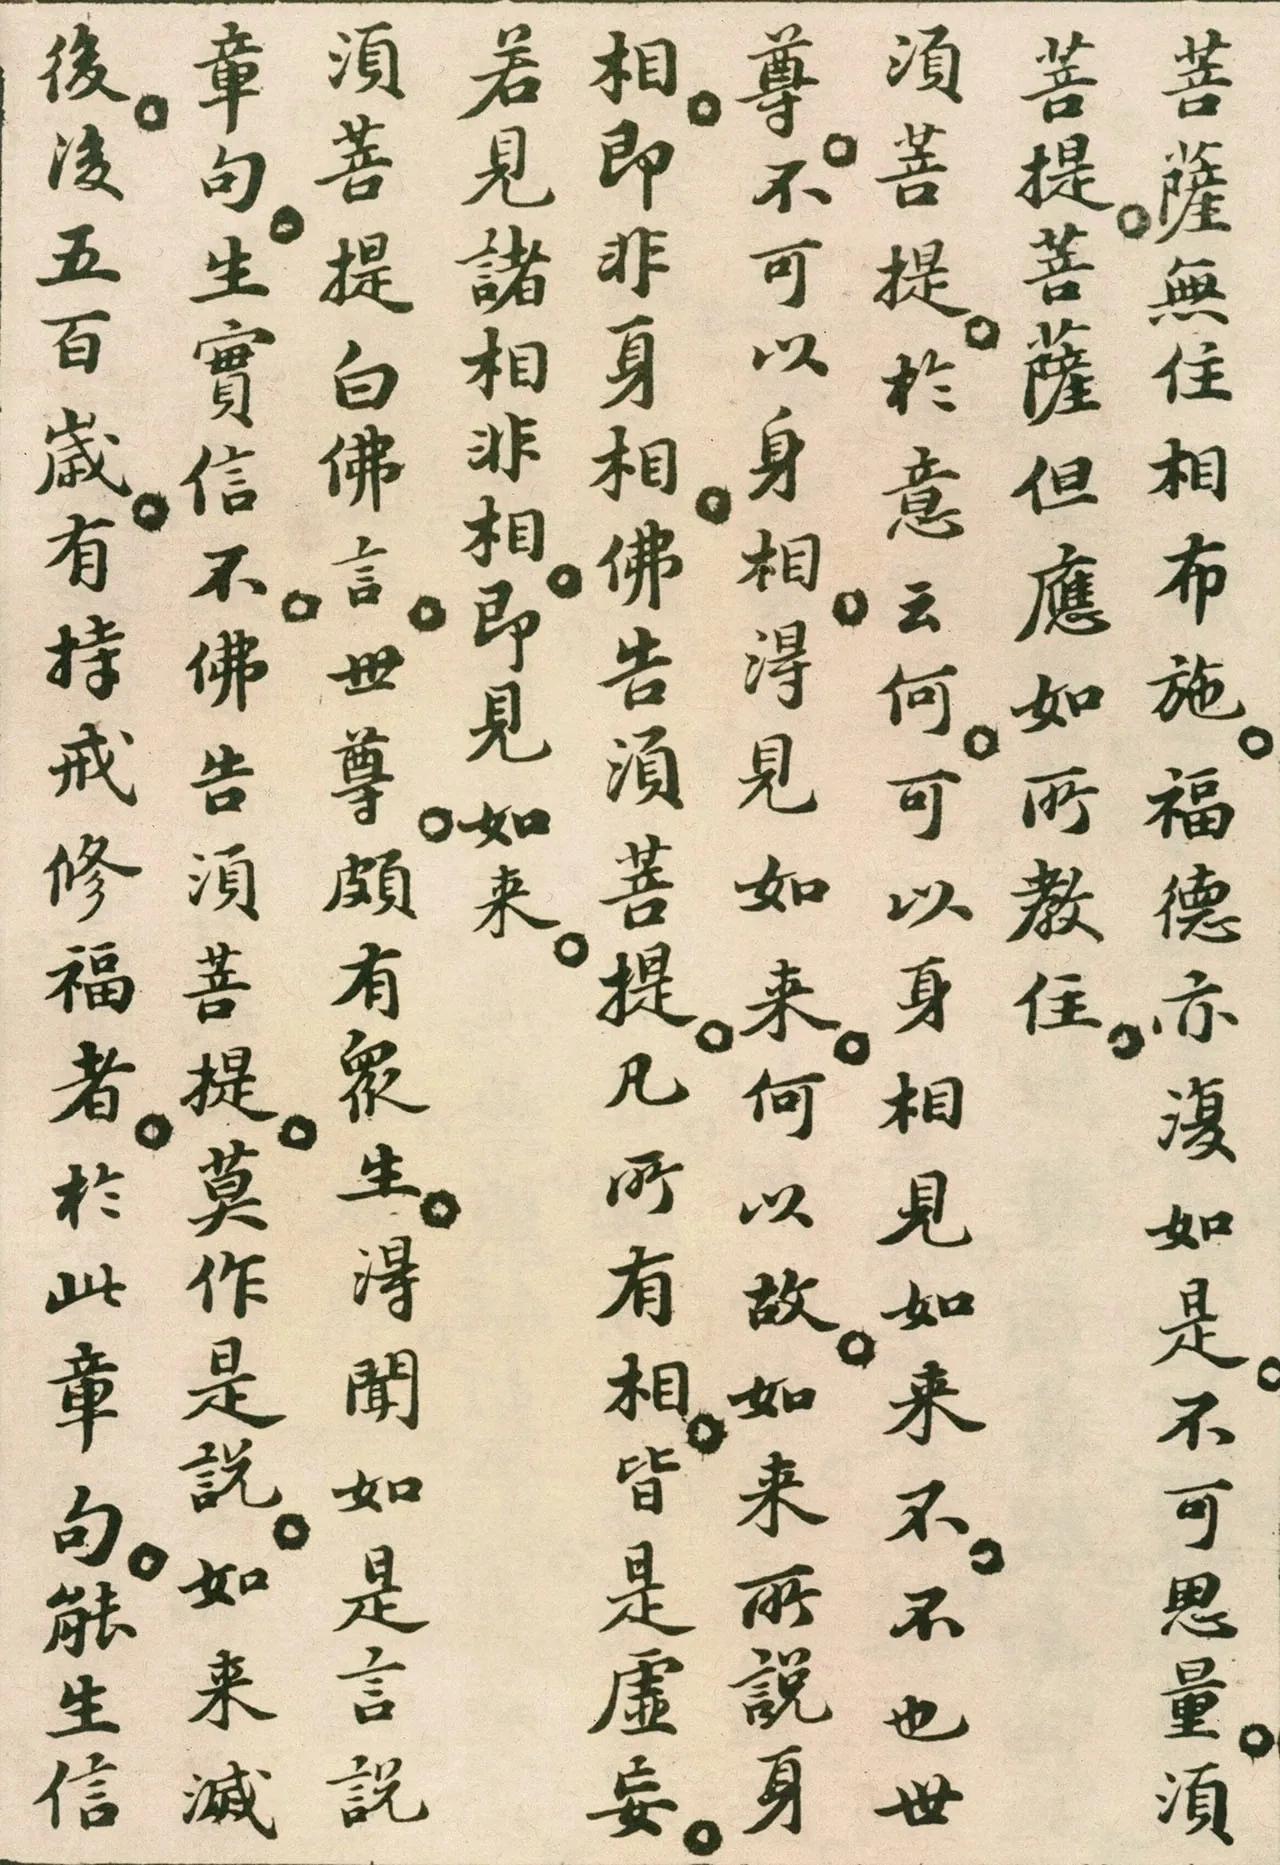 菩薩無住相布施。福德亦復如是。不可思量。須
菩提。菩薩但應如所教住。
須菩提。於意云何。可以身相見如来不。不也世
尊。不可以身相。得見如来。何以故。如来所說身
相。即非身相。佛告須菩提。凡所有相。皆是虛妄。
若見諸相非相。即見如来。
須菩提白佛言。世尊。頗有眾生。得聞如是言說
章句。生實信不。佛告須菩提。莫作是說。如来滅
後。後五百歲。有持戒修福者。於此章句。能生信